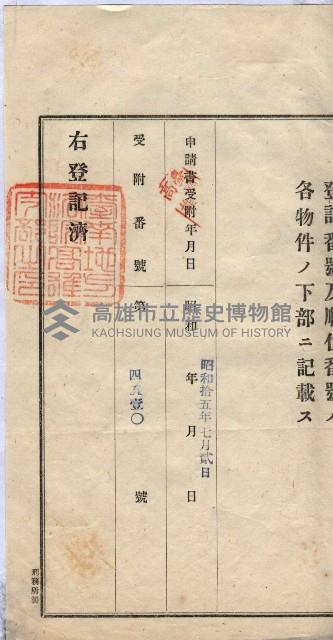 登記番號及順位番號ハ
各物件ノ下部ニ記載ス
申請書受附年月日
昭和 年 月 日
昭和拾五年七月貳日
受附番號
第 號
四
壹〇
右登記濟
高雄市立歷史博物館
KAOHSIUNG MUSEUM OF HISTORY
刑務所納